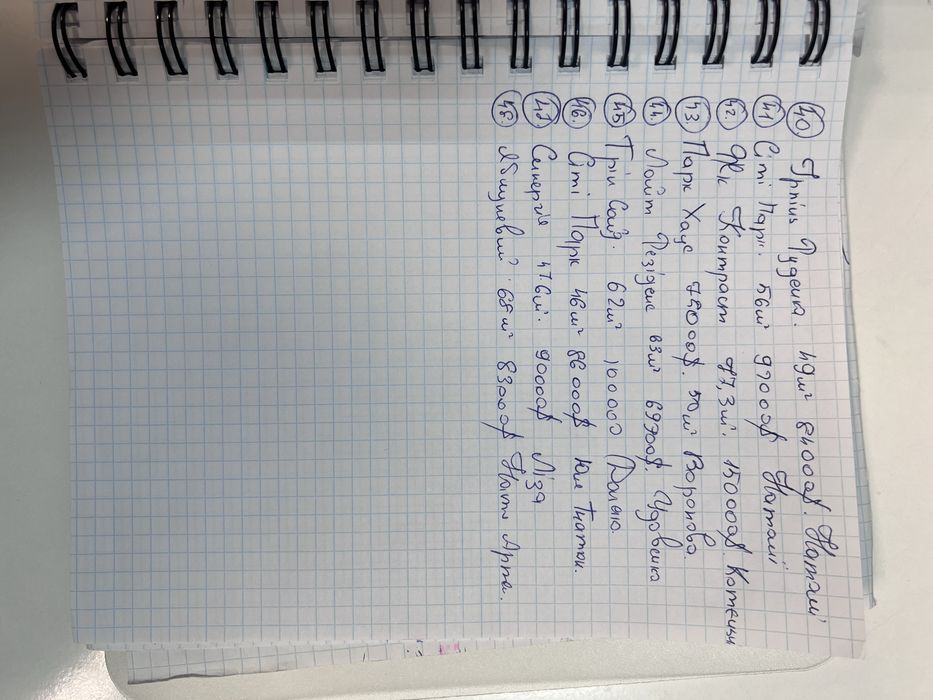 40. Ірпінь Руденка. 49м² 84000$. Наталі
41. Сіті Парк. 56м² 97000$ Наталі
42. ЖК Контраст 47,3м². 150000$.
43. Парк Хаус 78000$. 50м² Воронова.
44. Лайт Резіденс 83м² 69900$. Удовенко
45. Грін Сайд. 62м² 100000
46. Сіті Парк 46м² 86000$ Юля Гнатюк.
47. Синергія 47.6м². 90000$ Ліза
48. Яблуневий. 68м² 83000$